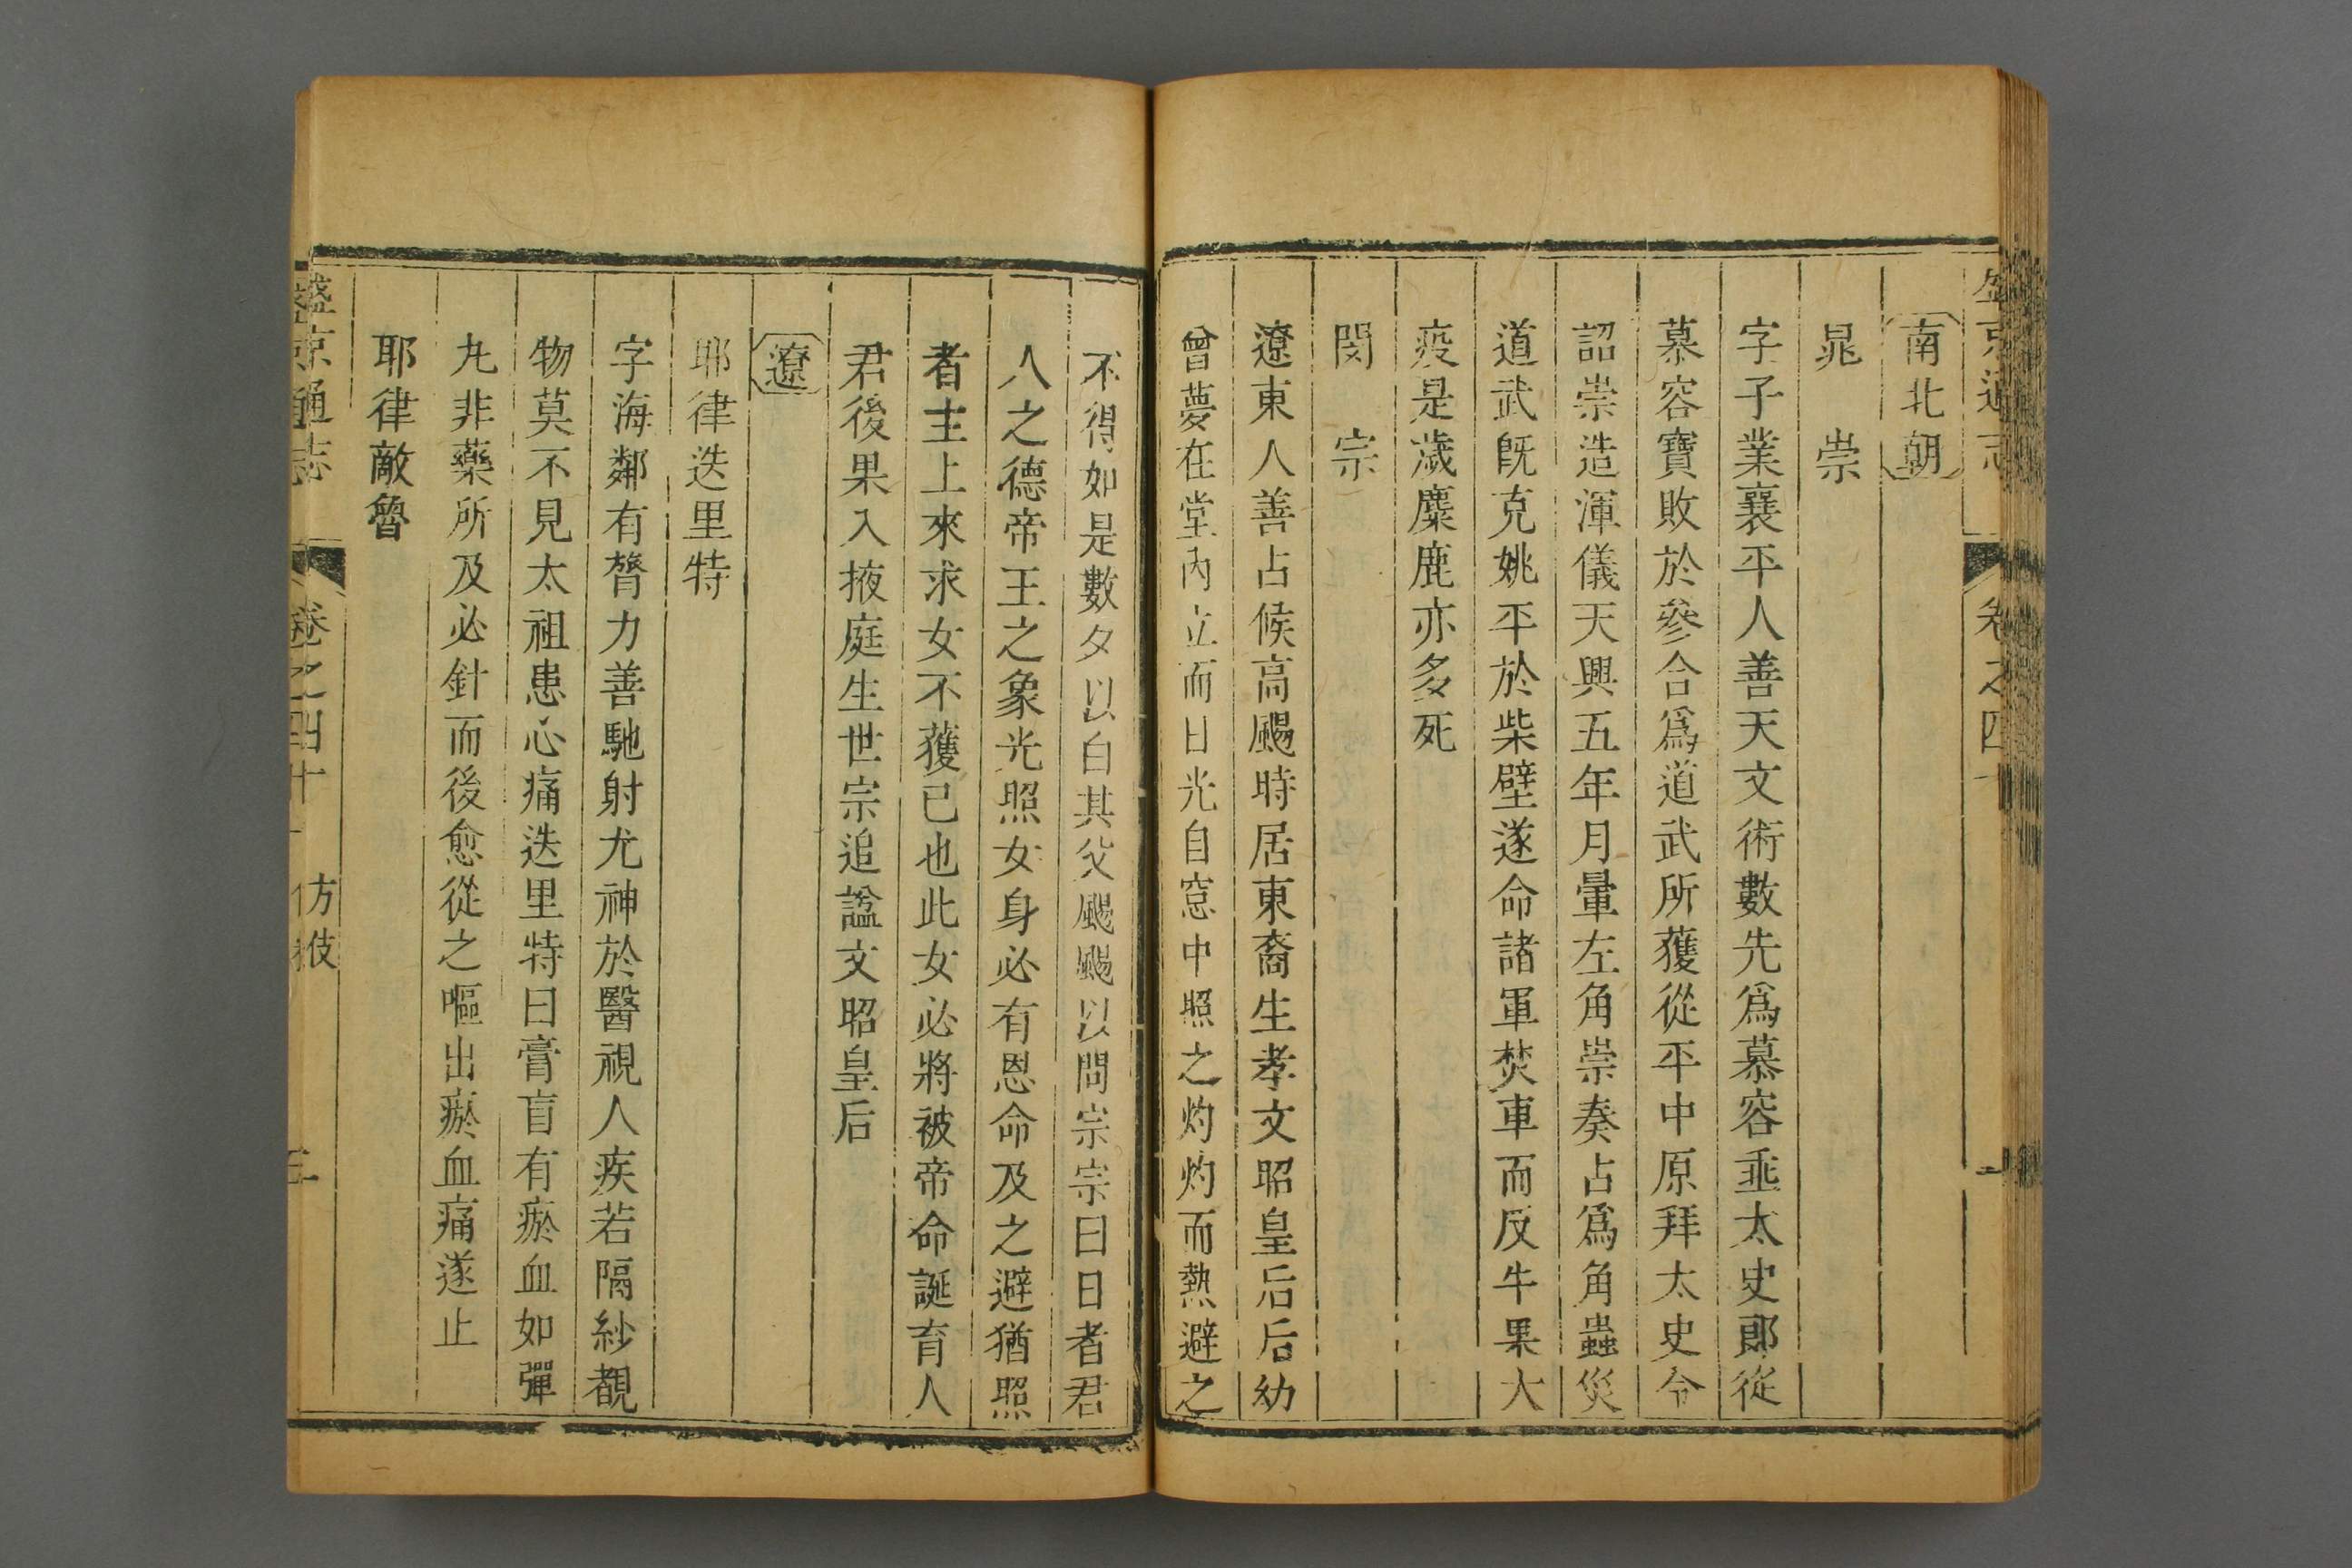 南北朝
晁崇
字子業襄平人善天文術數先爲慕容垂太史郎從
慕容寶敗於參合爲道武所獲從平中原拜太史令
詔崇造渾儀天興五年月暈左角崇奏占爲角蟲災
道武旣克姚平於柴壁遂命諸軍焚車而反牛果大
疫是歲麋鹿亦多死
閔宗
遼東人善占候高颺時居東裔生孝文昭皇后后幼
曾夢在堂內立而日光自窓中照之灼灼而熱避之
不得如是數夕以白其父颺颺以問宗宗曰日者君
人之德帝王之象光照女身必有恩命及之避猶照
者主上來求女不獲已也此女必將被帝命誕育人
君後果入掖庭生世宗追諡文昭皇后
遼
耶律迭里特
字海鄰有膂力善馳射尤神於醫視人疾若隔紗覩
物莫不見太祖患心痛迭里特曰膏肓有瘀血如彈
丸非藥所及必針而後愈從之嘔出瘀血痛遂止
耶律敵魯
盛京通志 卷之四十 方伎 三